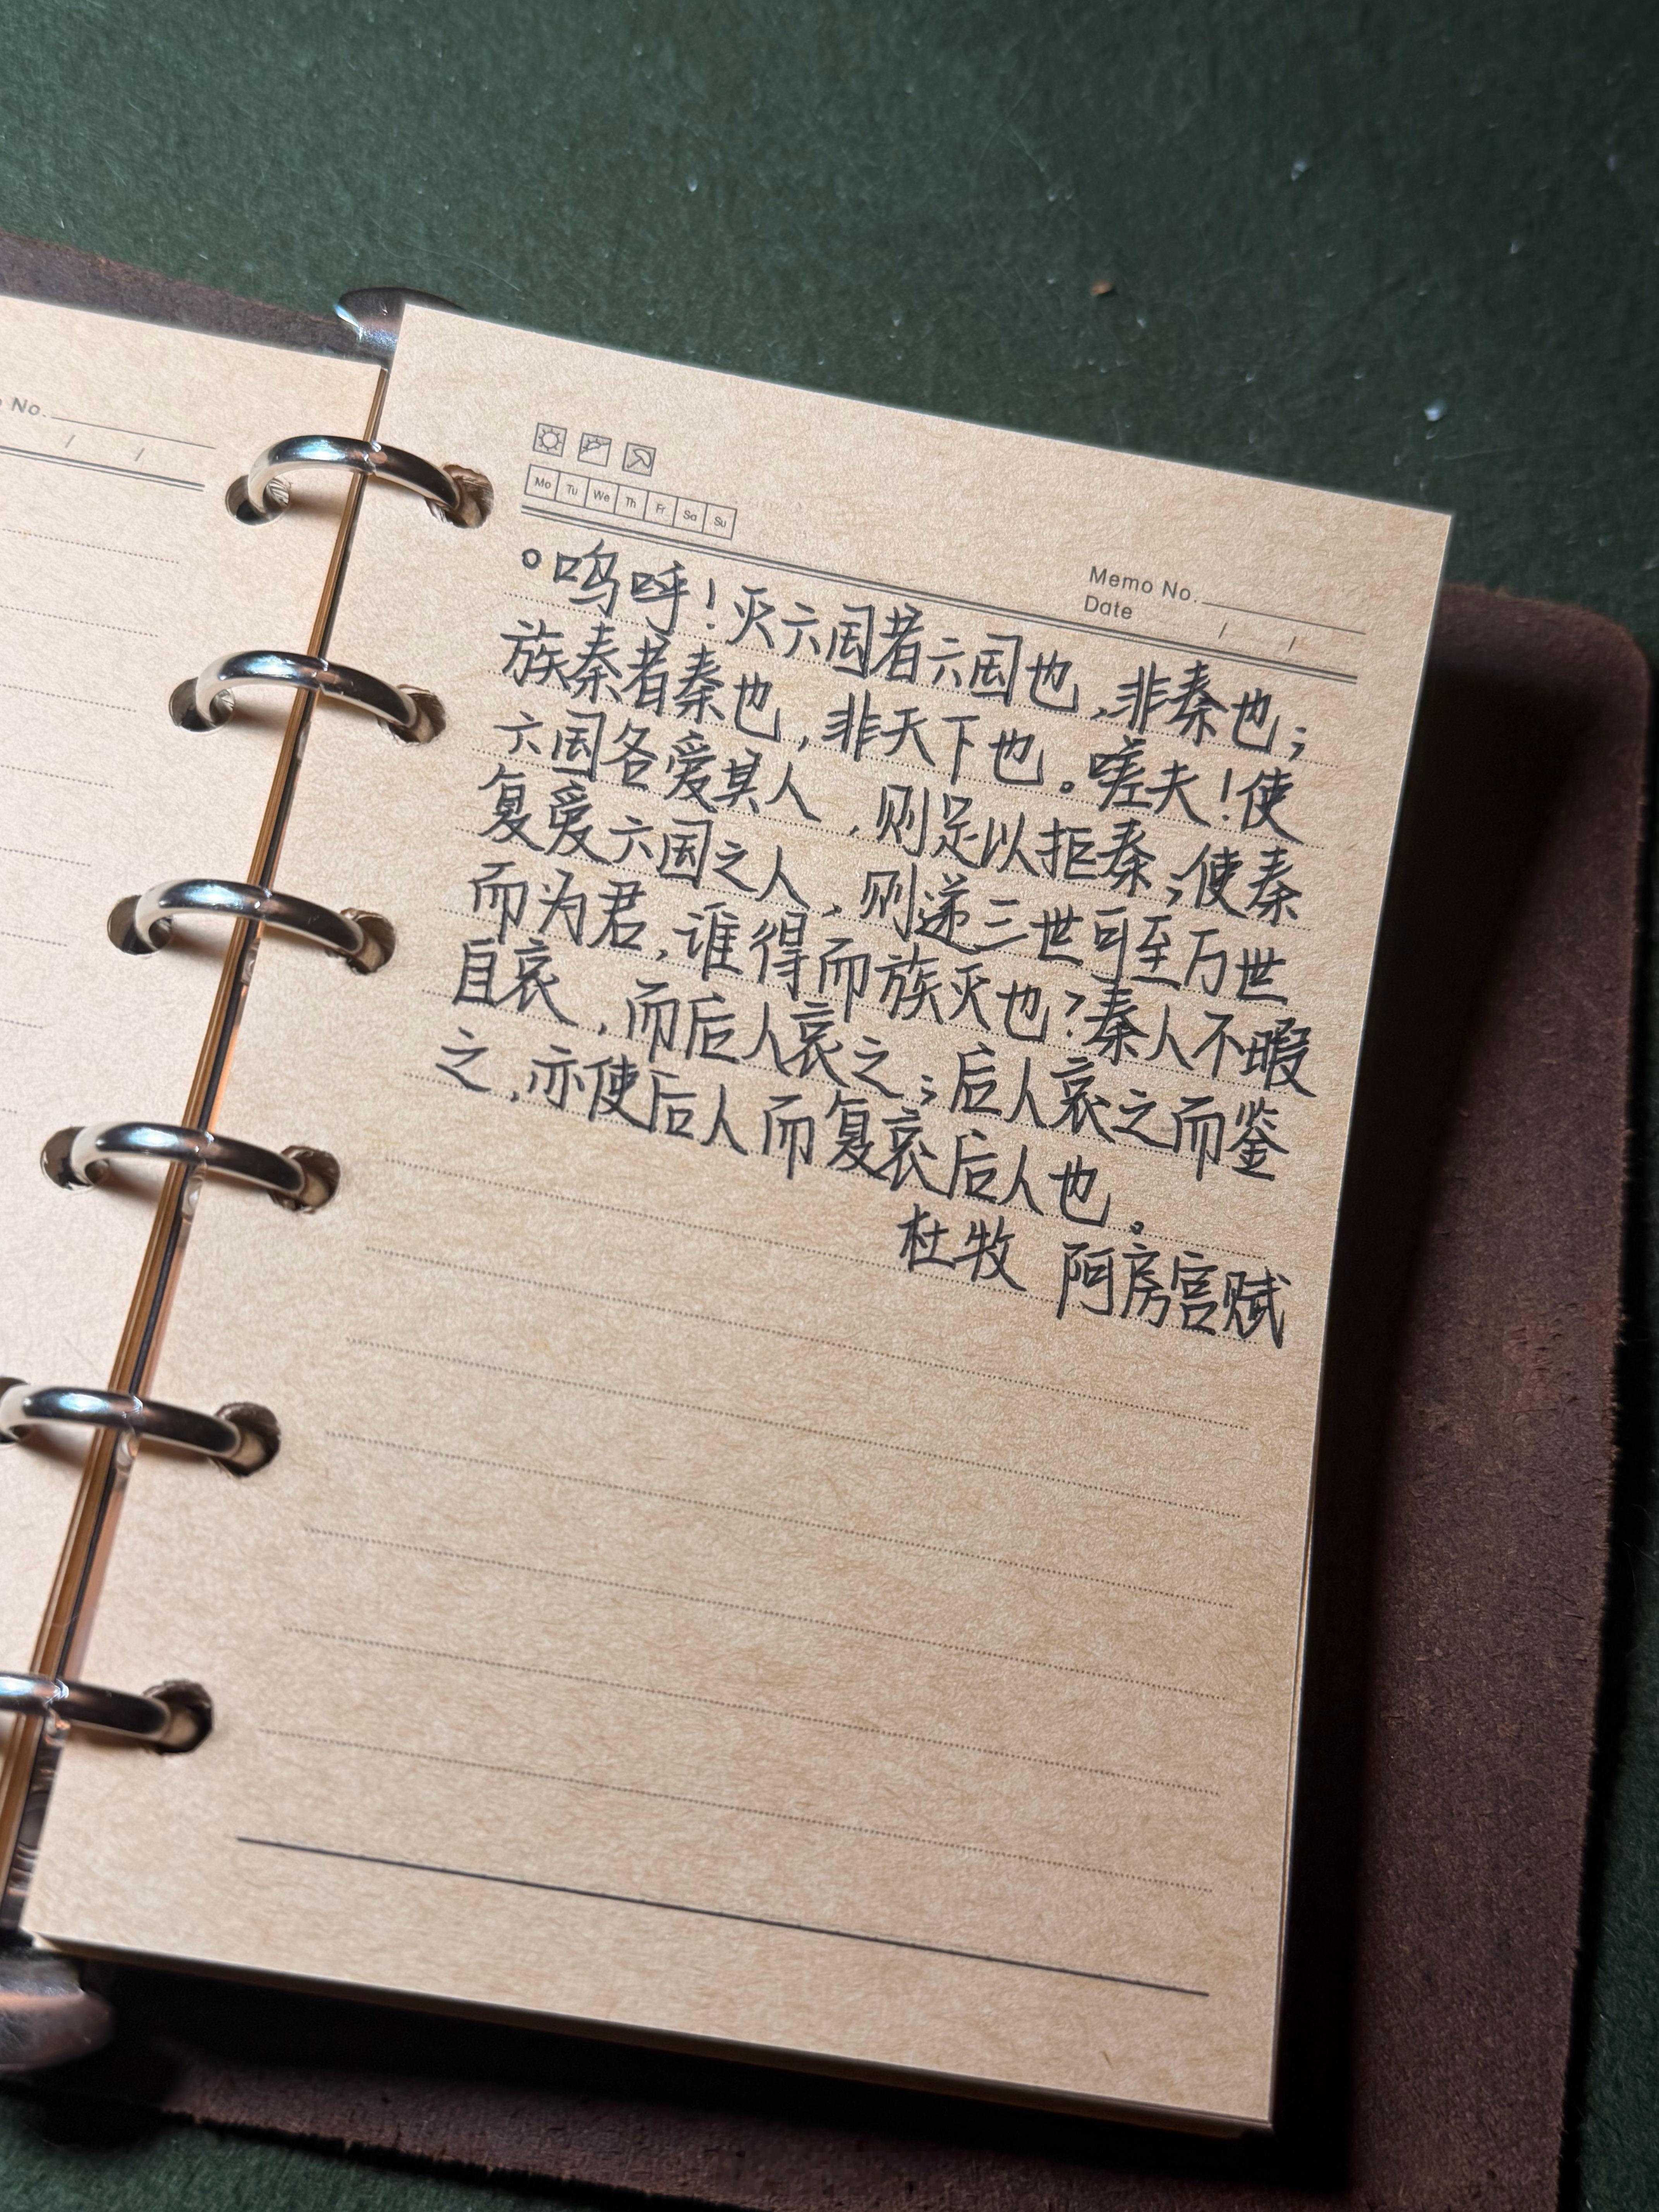 No.
/ /
Mo Tu We Th Fr Sa Su
Memo No.
Date / /
。呜呼！灭六国者六国也，非秦也；
族秦者秦也，非天下也。嗟夫！使
六国各爱其人，则足以拒秦；使秦
复爱六国之人，则递三世可至万世
而为君，谁得而族灭也？秦人不暇
自哀，而后人哀之；后人哀之而鉴
之，亦使后人而复哀后人也。
杜牧 阿房宫赋